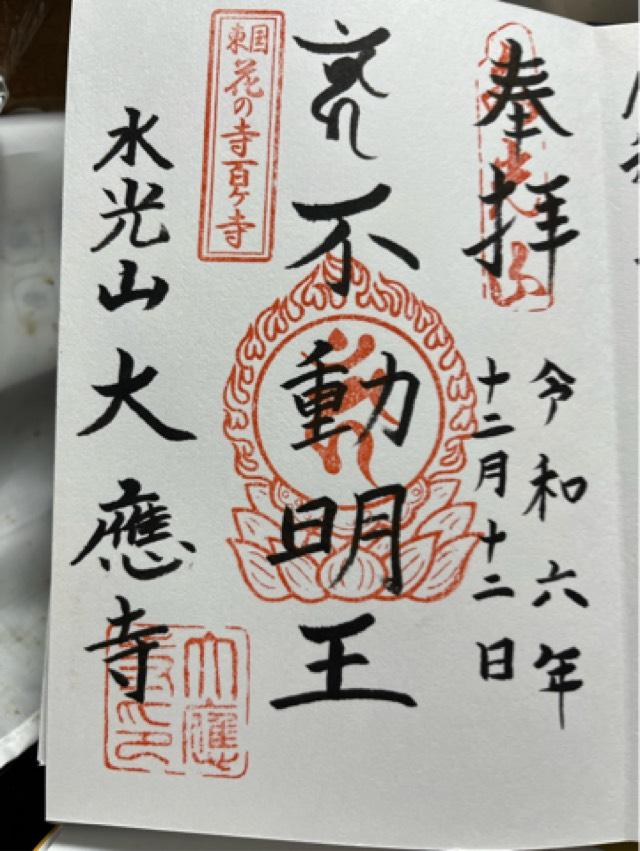 奉拝
令和六年
十二月十二日
不動明王
東国花の寺百ヶ寺
水光山大應寺
大應